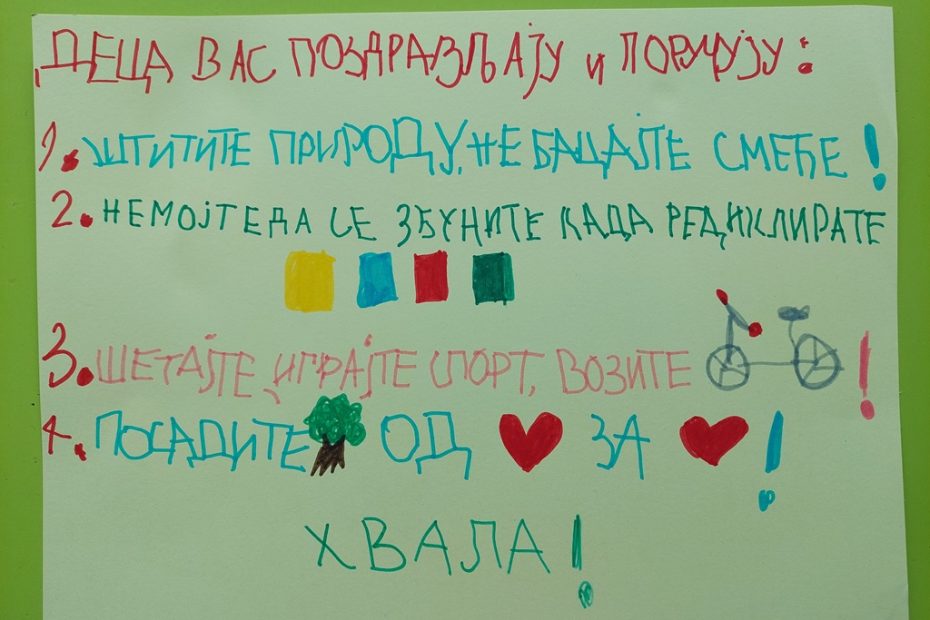 ДЕЦА ВАС ПОЗДРАВЉАЈУ И ПОРУЧУЈУ:
1. ШТИТИТЕ ПРИРОДУ, НЕ БАЦАЈТЕ СМЕЋЕ!
2. НЕМОЈТЕ ДА СЕ ЗБУНИТЕ КАДА РЕЦИКЛИРАТЕ
3. ШЕТАЈТЕ, ИГРАЈТЕ СПОРТ, ВОЗИТЕ !
4. ПОСАДИТЕ ОД ЗА !
ХВАЛА!